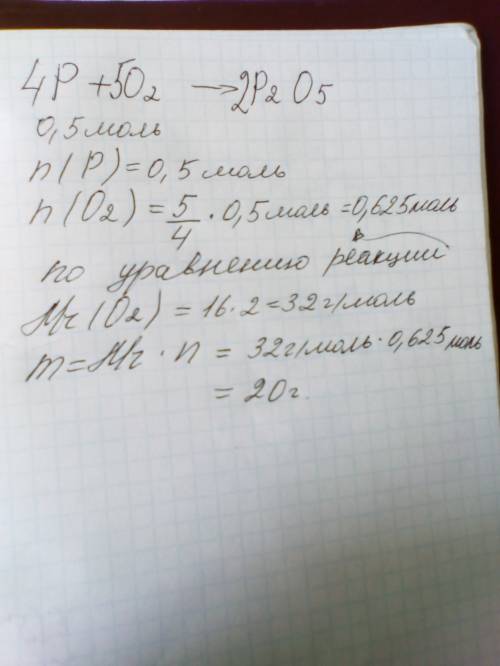 4P + 5O₂ → 2P₂O₅
0,5 моль
n(P) = 0,5 моль
n(O₂) = 5/4 · 0,5 моль = 0,625 моль
по уравнению реакции
Mr(O₂) = 16·2 = 32 г/моль
m = Mr · n = 32 г/моль · 0,625 моль
= 20 г.